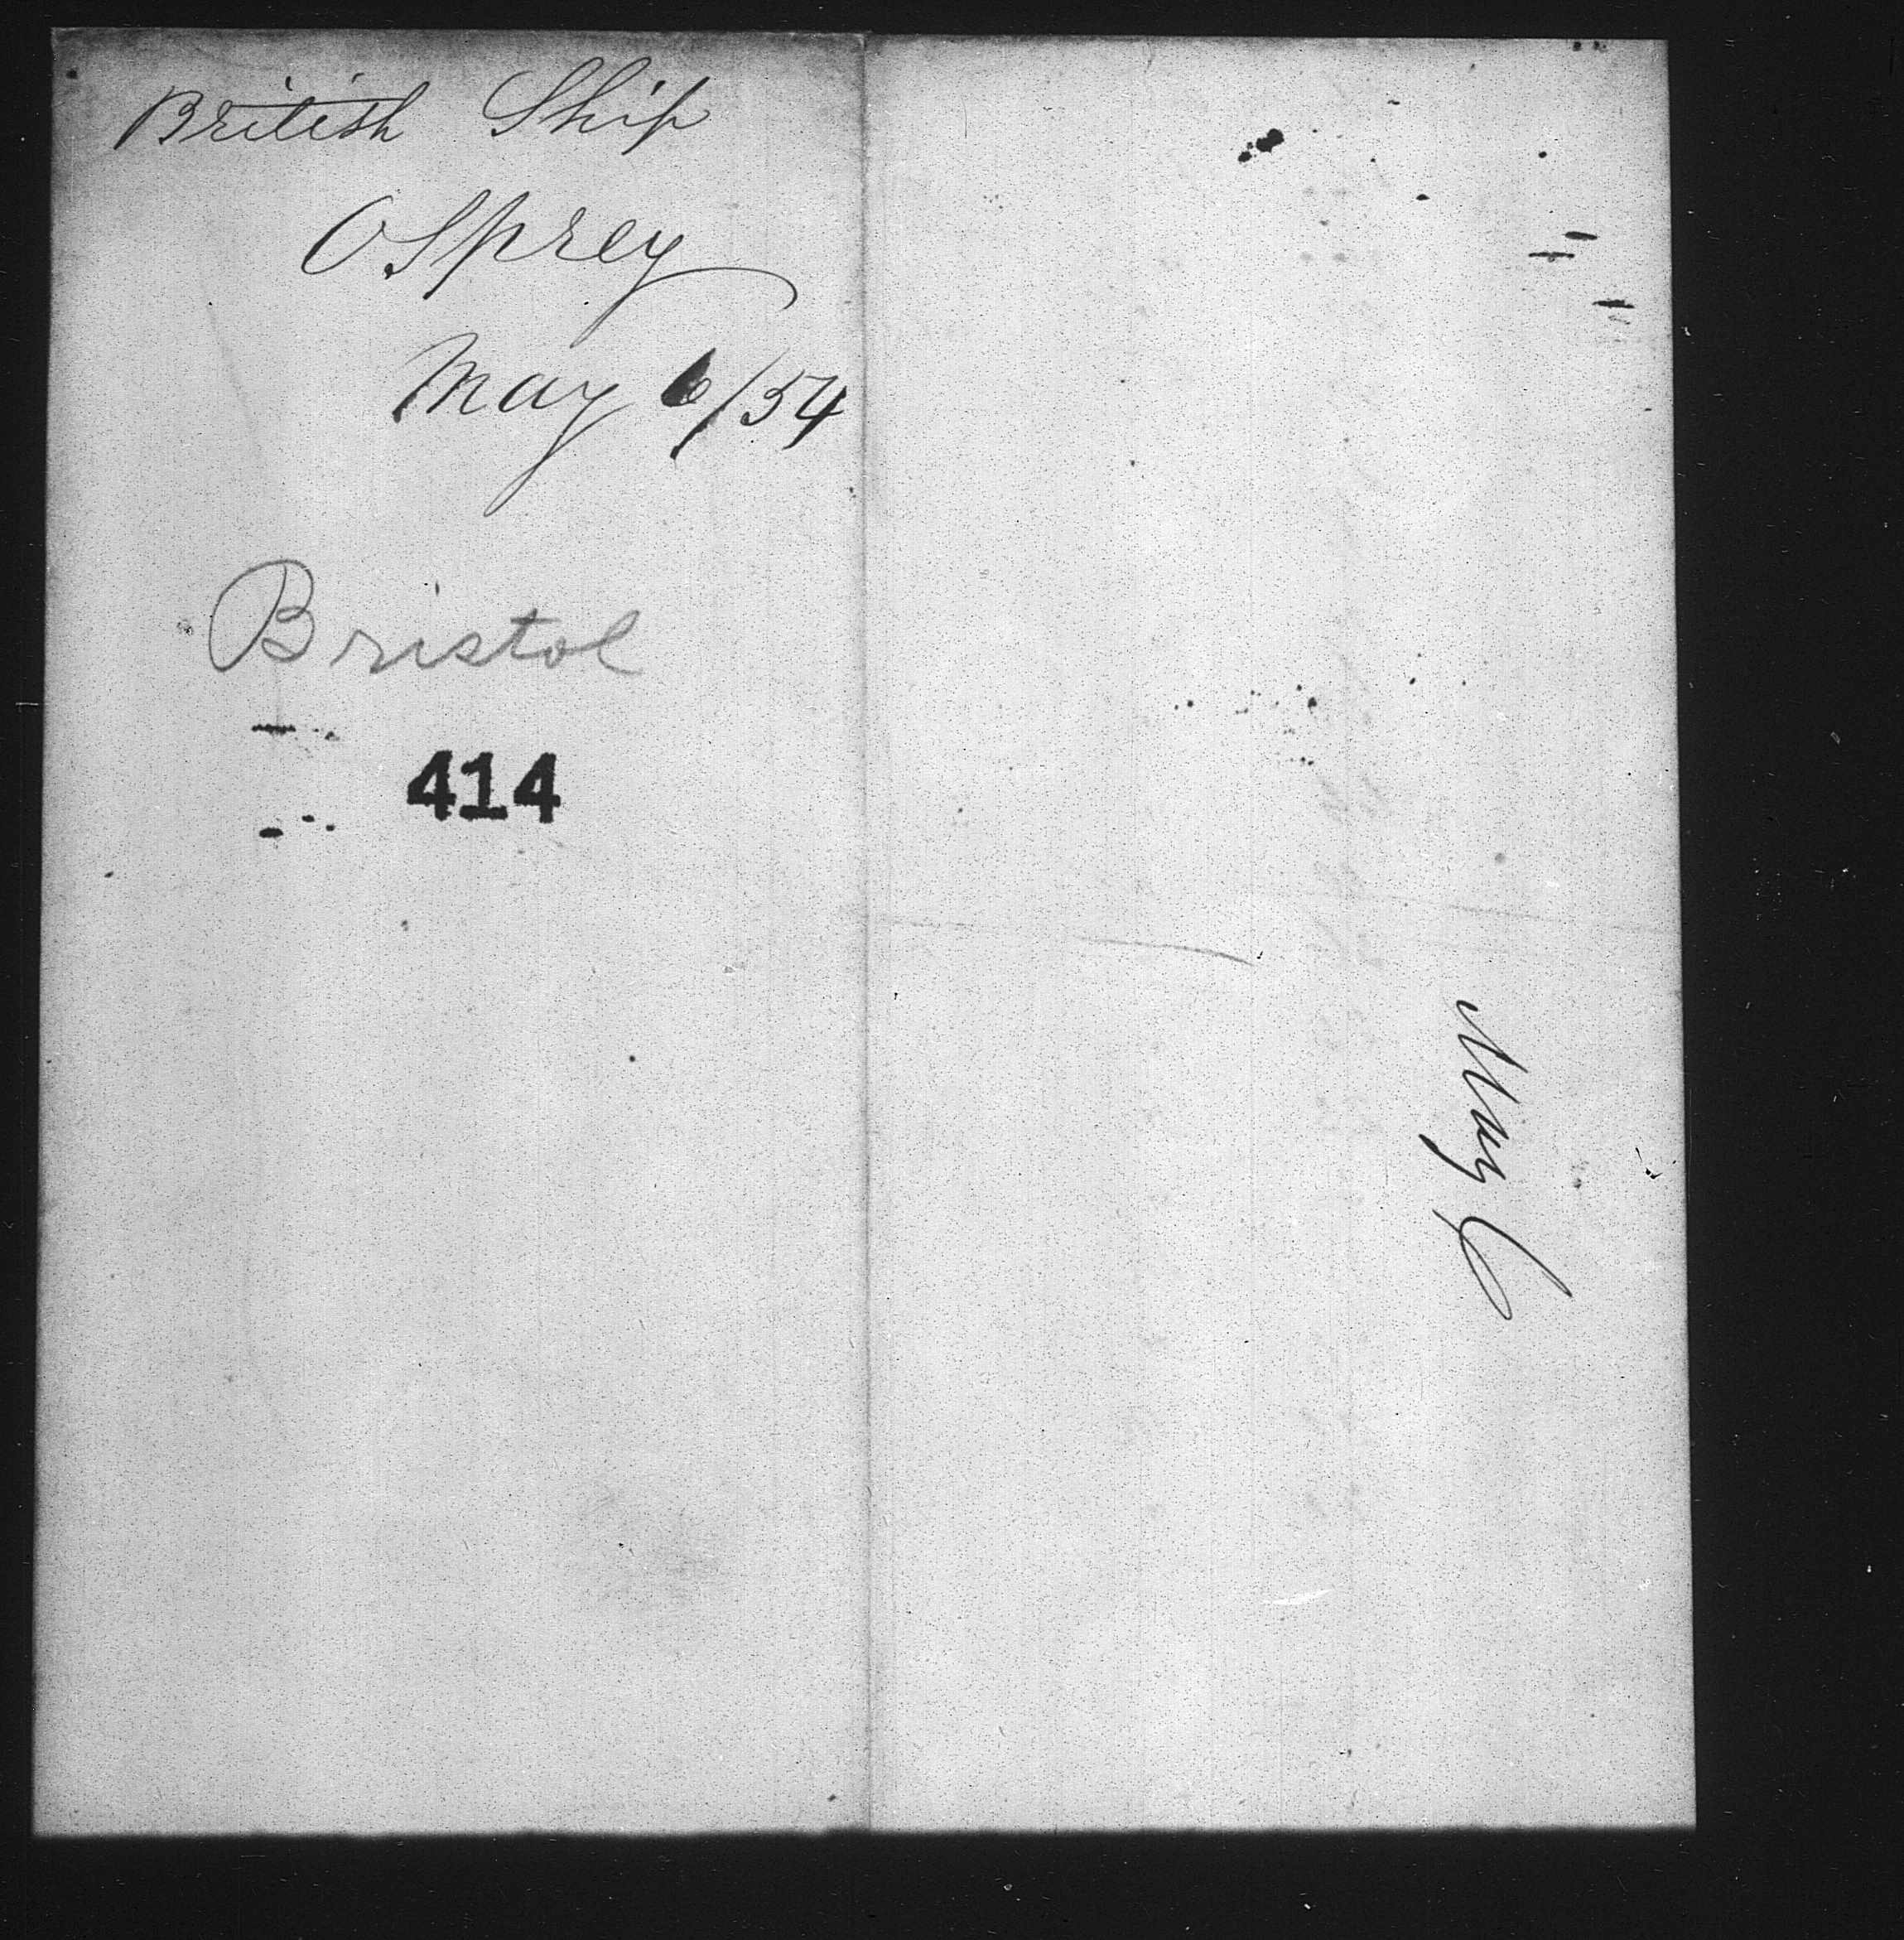 British Ship
Osprey
May 6/54
Bristol
414
May 6